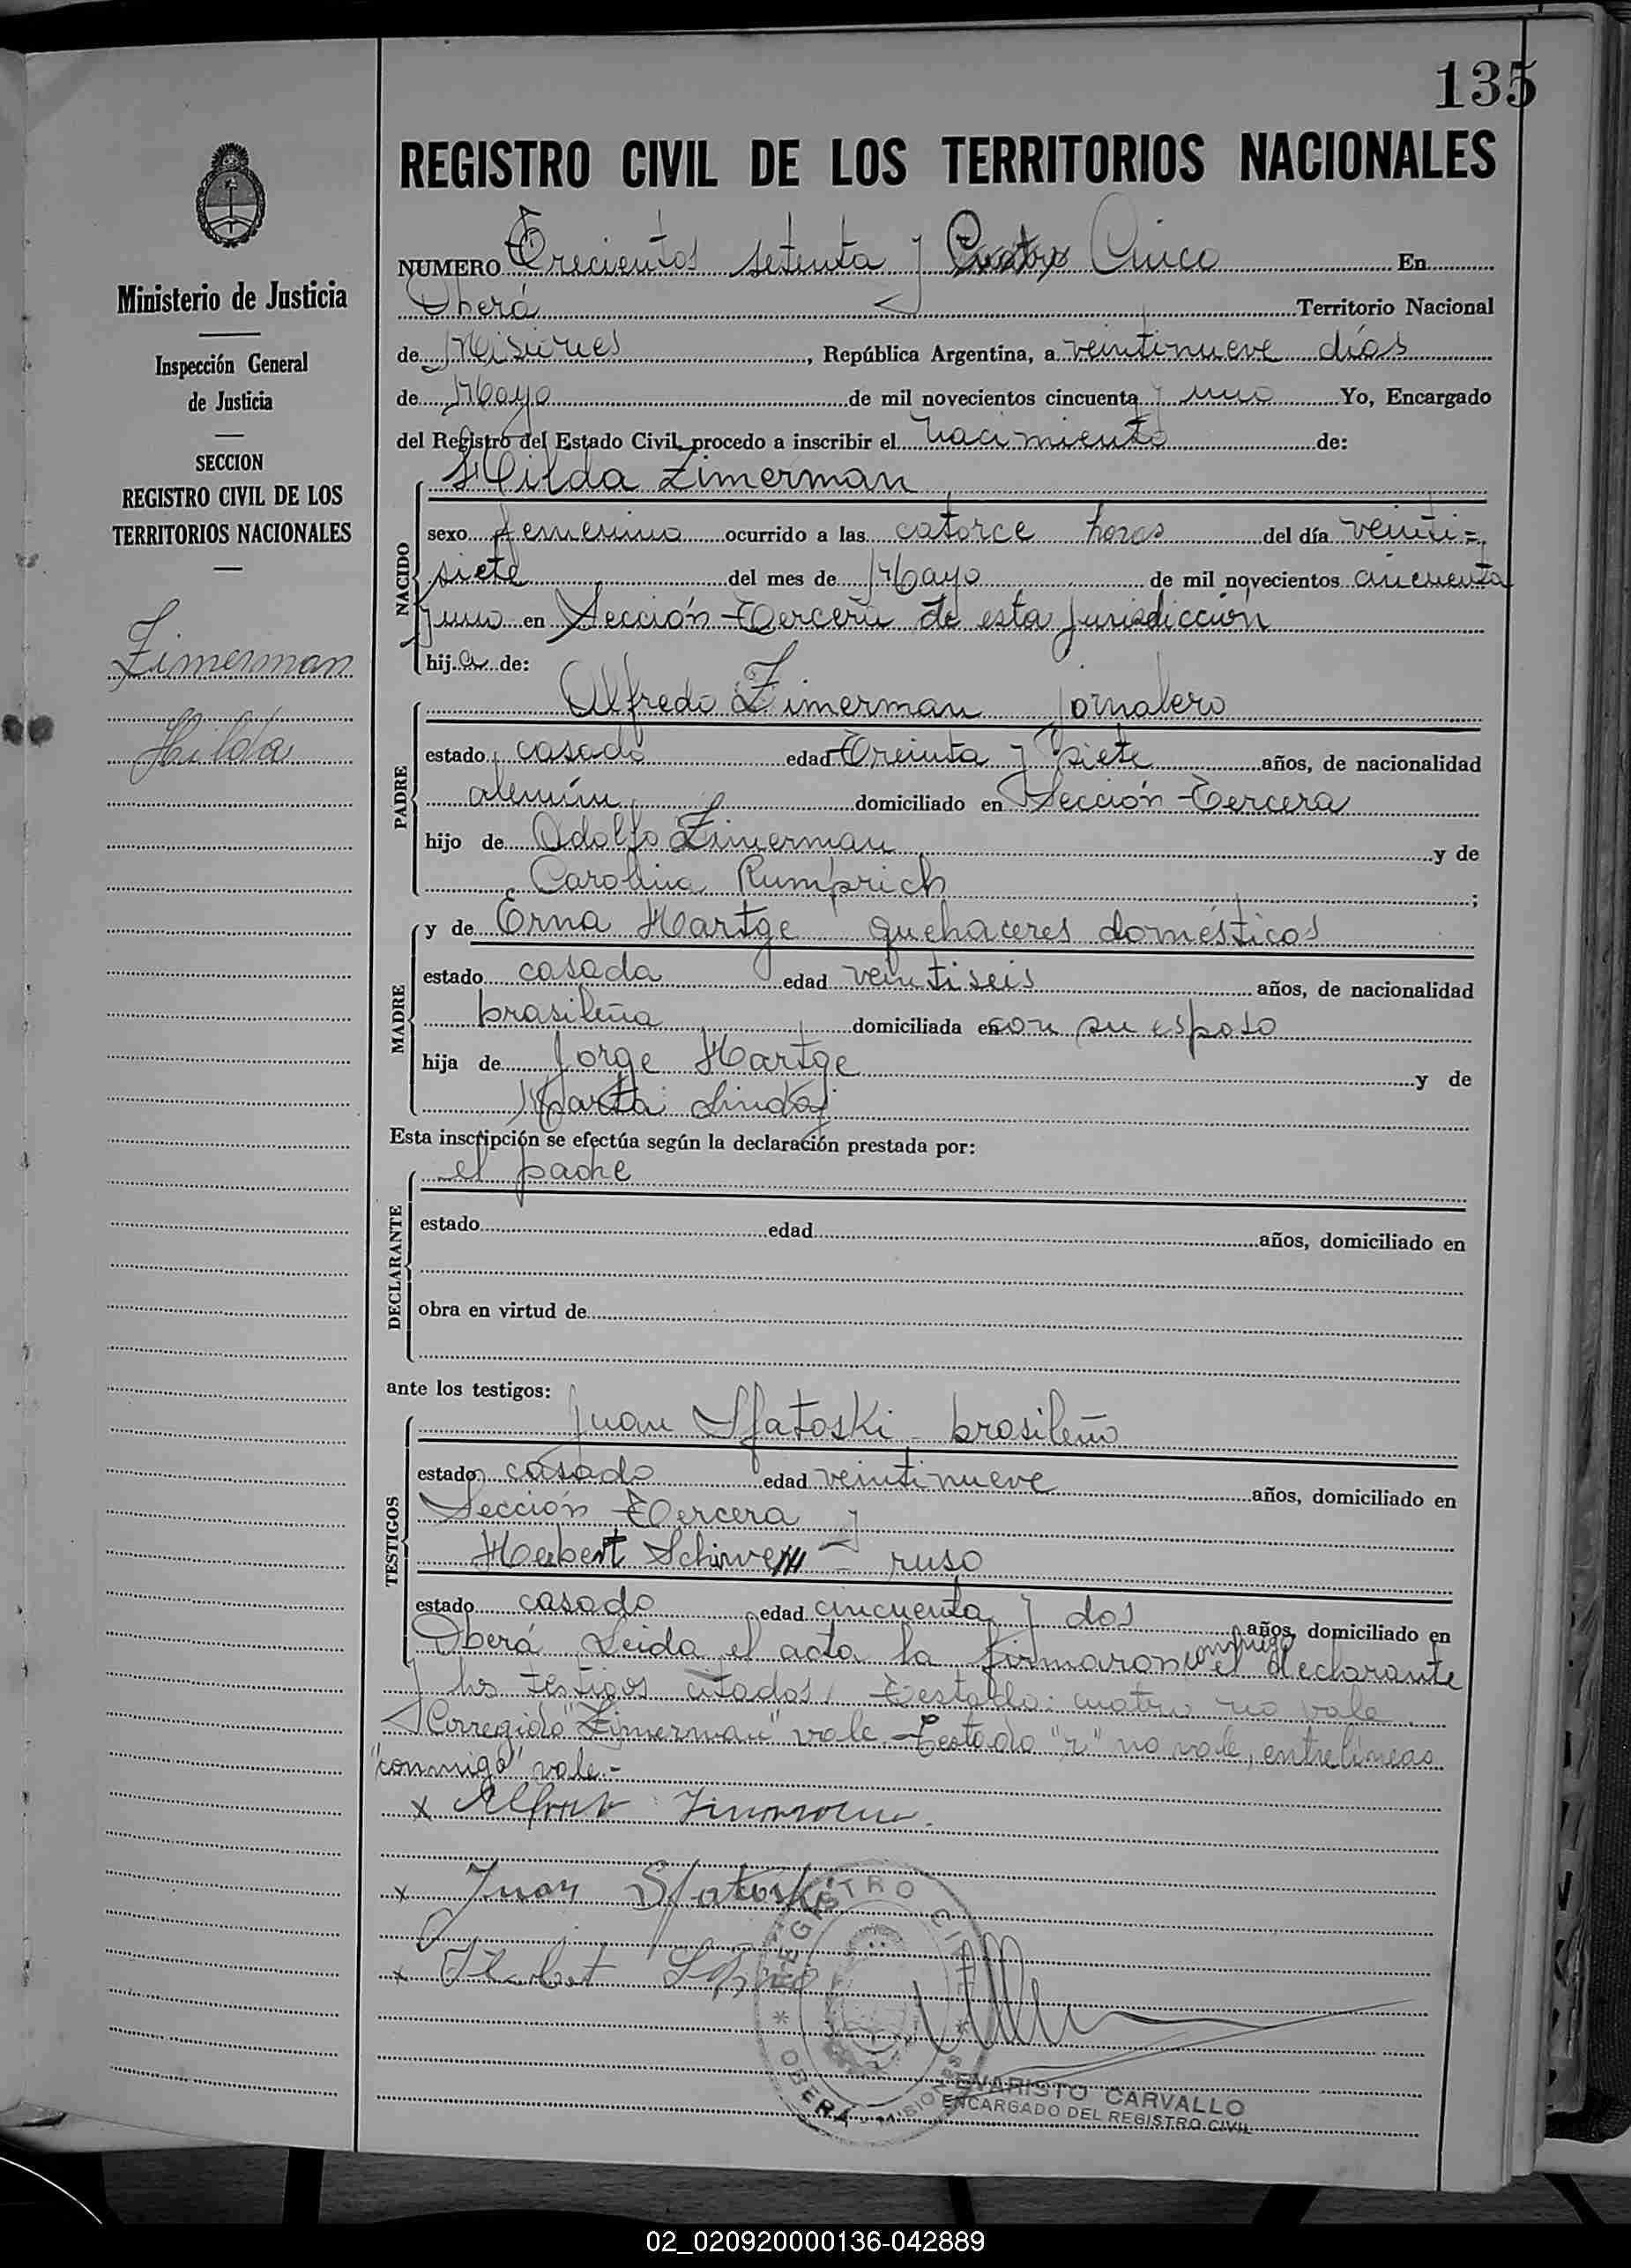 135
REGISTRO CIVIL DE LOS TERRITORIOS NACIONALES
Ministerio de Justicia
Inspección General
de Justicia
SECCION
REGISTRO CIVIL DE LOS
TERRITORIOS NACIONALES
Zimerman
Hilda
NUMERO Trecientos setenta y Cuatro Cinco En
Oberá Territorio Nacional
de Misiones, República Argentina, a veintinueve días
de Mayo de mil novecientos cincuenta y uno Yo, Encargado
del Registro del Estado Civil, procedo a inscribir el nacimiento de:
NACIDO
Hilda Zimerman
sexo femenino ocurrido a las catorce horas del día veinti=
siete del mes de Mayo de mil novecientos cincuenta
y uno en Sección Tercera de esta jurisdicción
hija de:
PADRE
Alfredo Zimerman jornalero
estado casado edad Treinta y siete años, de nacionalidad
alemán domiciliado en Sección Tercera
hijo de Adolfo Zimerman y de
Carolina Rumprich ;
MADRE
y de Erna Hartge quehaceres domésticos
estado casada edad veintiseis años, de nacionalidad
brasileña domiciliada en con su esposo
hija de Jorge Hartge y de
Marta
Esta inscripción se efectúa según la declaración prestada por:
DECLARANTE
el padre
estado edad años, domiciliado en
obra en virtud de
ante los testigos:
TESTIGOS
Juan Sfatoski brasileño
estado casado edad veintinueve años, domiciliado en
Sección Tercera y
Herbert ruso
estado casado edad cincuenta y dos años, domiciliado en
Oberá Leida el acta la firmaron conmigo el declarante
y los testigos citados, Testado: cuatro no vale
Corregido "Zimerman" vale Testado "r" no vale, entrelíneas
"conmigo" vale.-
x
x Juan Sfatoski
x
REGISTRO CIVIL
* OBERÁ - MISIONES *
EVARISTO CARVALLO
ENCARGADO DEL REGISTRO CIVIL
02_020920000136-042889